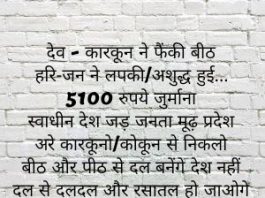 देव - कारकून ने फैंकी बीठ
हरि-जन ने लपकी/अशुद्ध हुई...
5100 रुपये जुर्माना
स्वाधीन देश जड़ जनता मूढ़ प्रदेश
अरे कारकूनो/कोकून से निकलो
बीठ और पीठ से दल बनेंगे देश नहीं
दल से दलदल और रसातल हो जाओगे